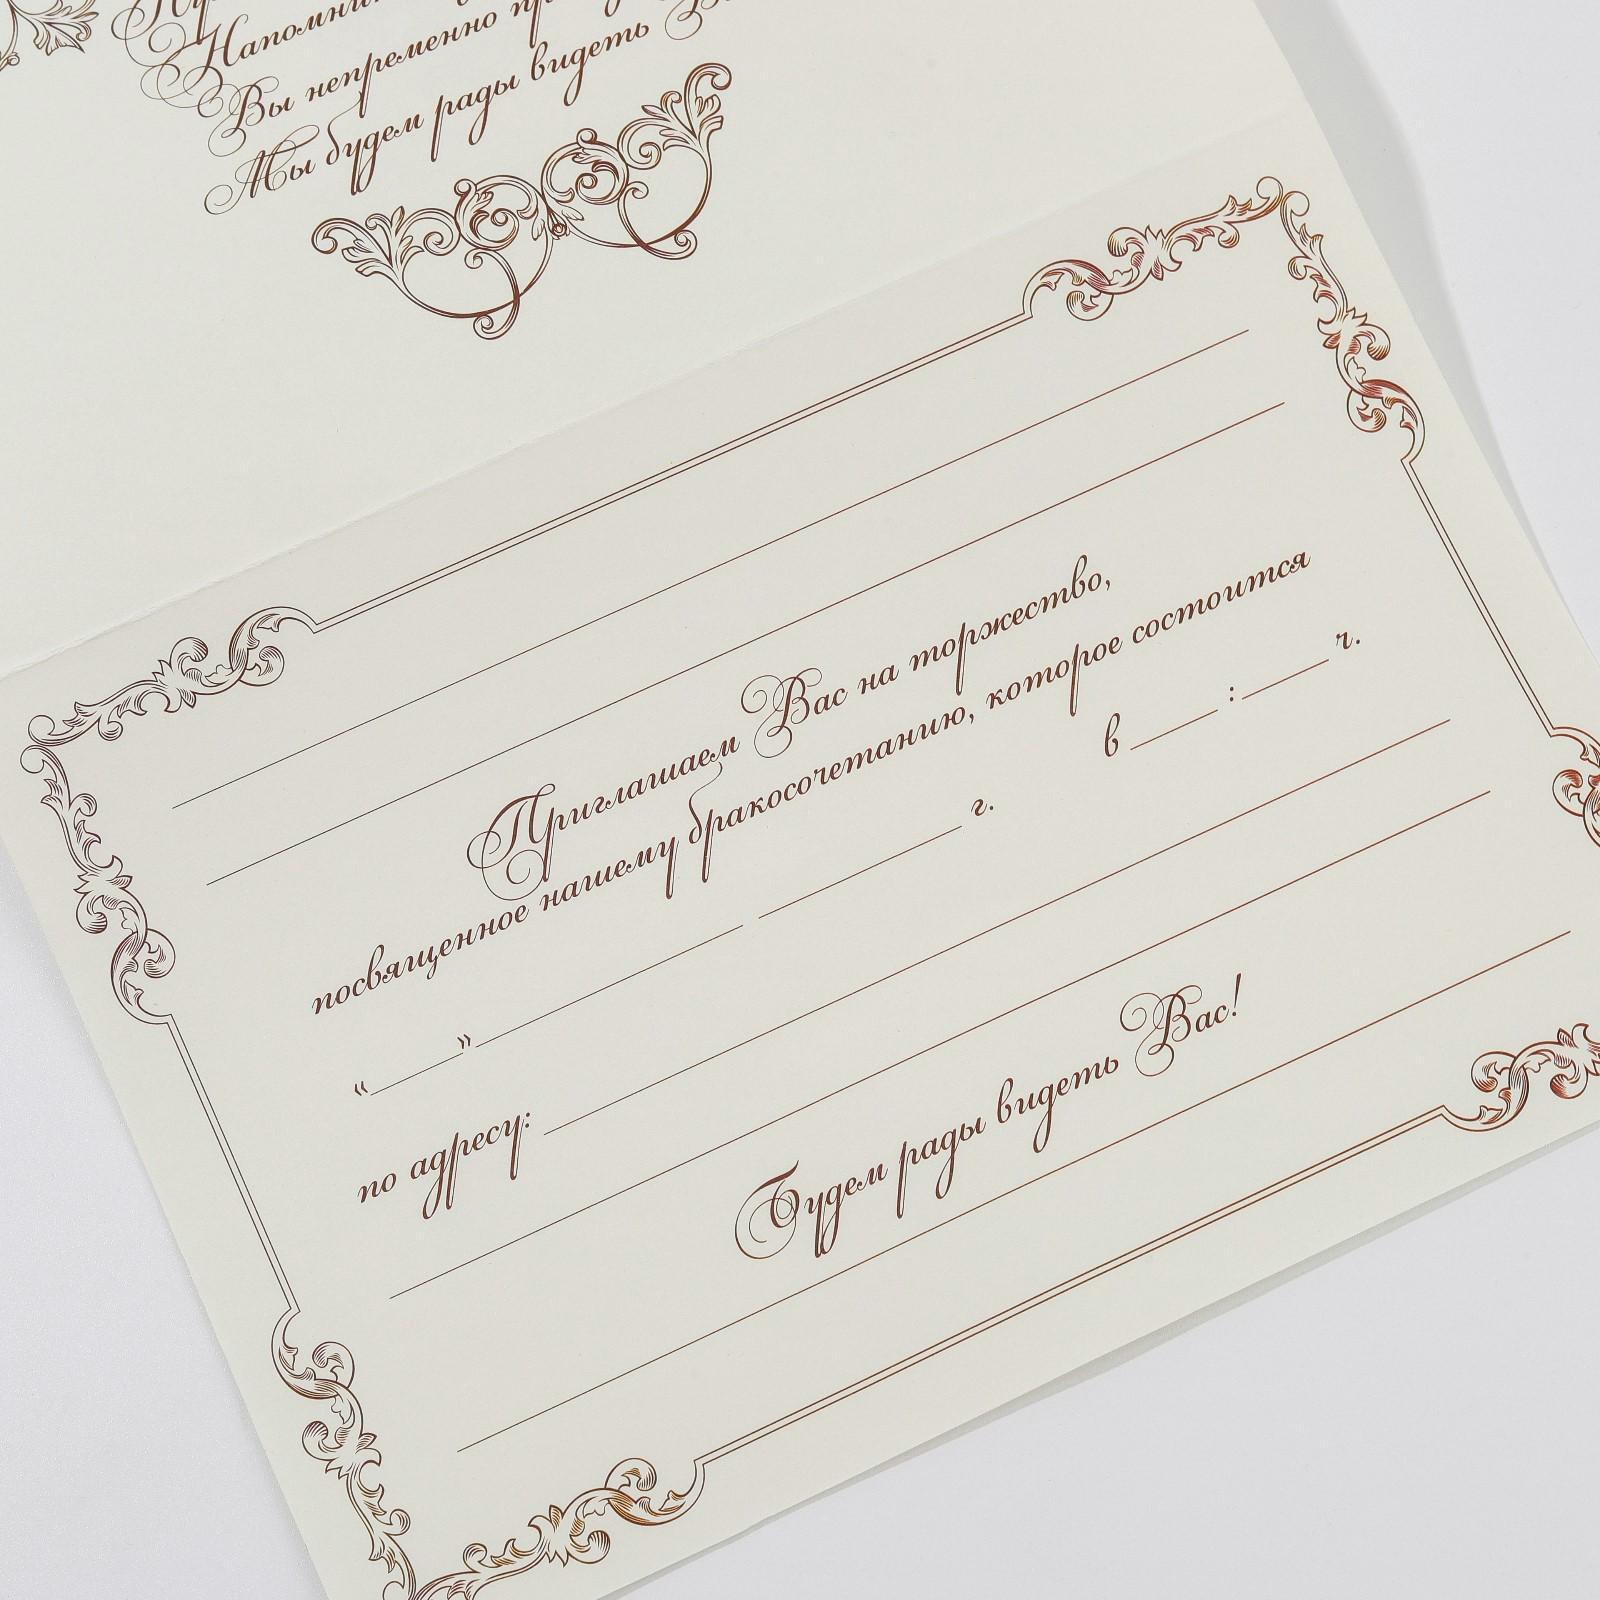 Напомнит
Вы непременно
Мы будем рады видеть
Приглашаем Вас на торжество,
посвященное нашему бракосочетанию, которое состоится
«____»____________ ________ г. в ____ : ____ ч.
по адресу:
Будем рады видеть Вас!